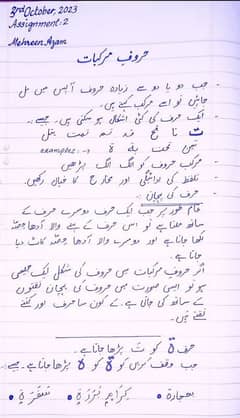 3rd October, 2023
Assignment: 2
Mehreen Azam
حروف مرکبات
- جب دو یا دو سے زیادہ حروف آپس میں مل
جائیں تو اسے مرکب کہتے ہیں۔
- ایک حرف کی کئی اشکال ہو سکتی ہیں۔ جیسے:
examples: →
- مرکب حروف کو الگ الگ پڑھیں
- تلفظ کی ادائیگی اور مخارج کا خیال رکھیں۔
- حرف کی پہچان:
عام طور پر جب ایک حرف دوسرے حرف کے
ساتھ ملتا ہے تو اس حرف کے پہلے والا آدھا حصہ
لکھا جاتا ہے اور دوسرے والا آدھا حصہ کاٹ دیا
جاتا ہے۔
اگر حروف مرکبات میں حروف کی شکل ایک جیسی
ہو تو ایسی صورت میں حروف کی پہچان نقطوں
کے ساتھ کی جاتی ہے۔ کے کون سا حرف اور کتنے
نقطے ہیں۔
حرف ة کو ت پڑھا جاتا ہے۔
جب وقف کریں کو ة کو ہ پڑھا جاتا ہے۔ جیسے: